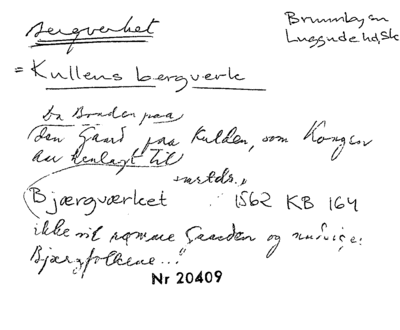 Bergverket
Brunnbysn
Luggude hd, Sk
= Kullens bergverk
Da Bonden paa
den Gaard paa Kulden, som Kongen
har henlagt til
Bjærgværket 1562 KB 164
ikke vil rømme Gaarden og
Bjærgfolkene..."
Nr 20409